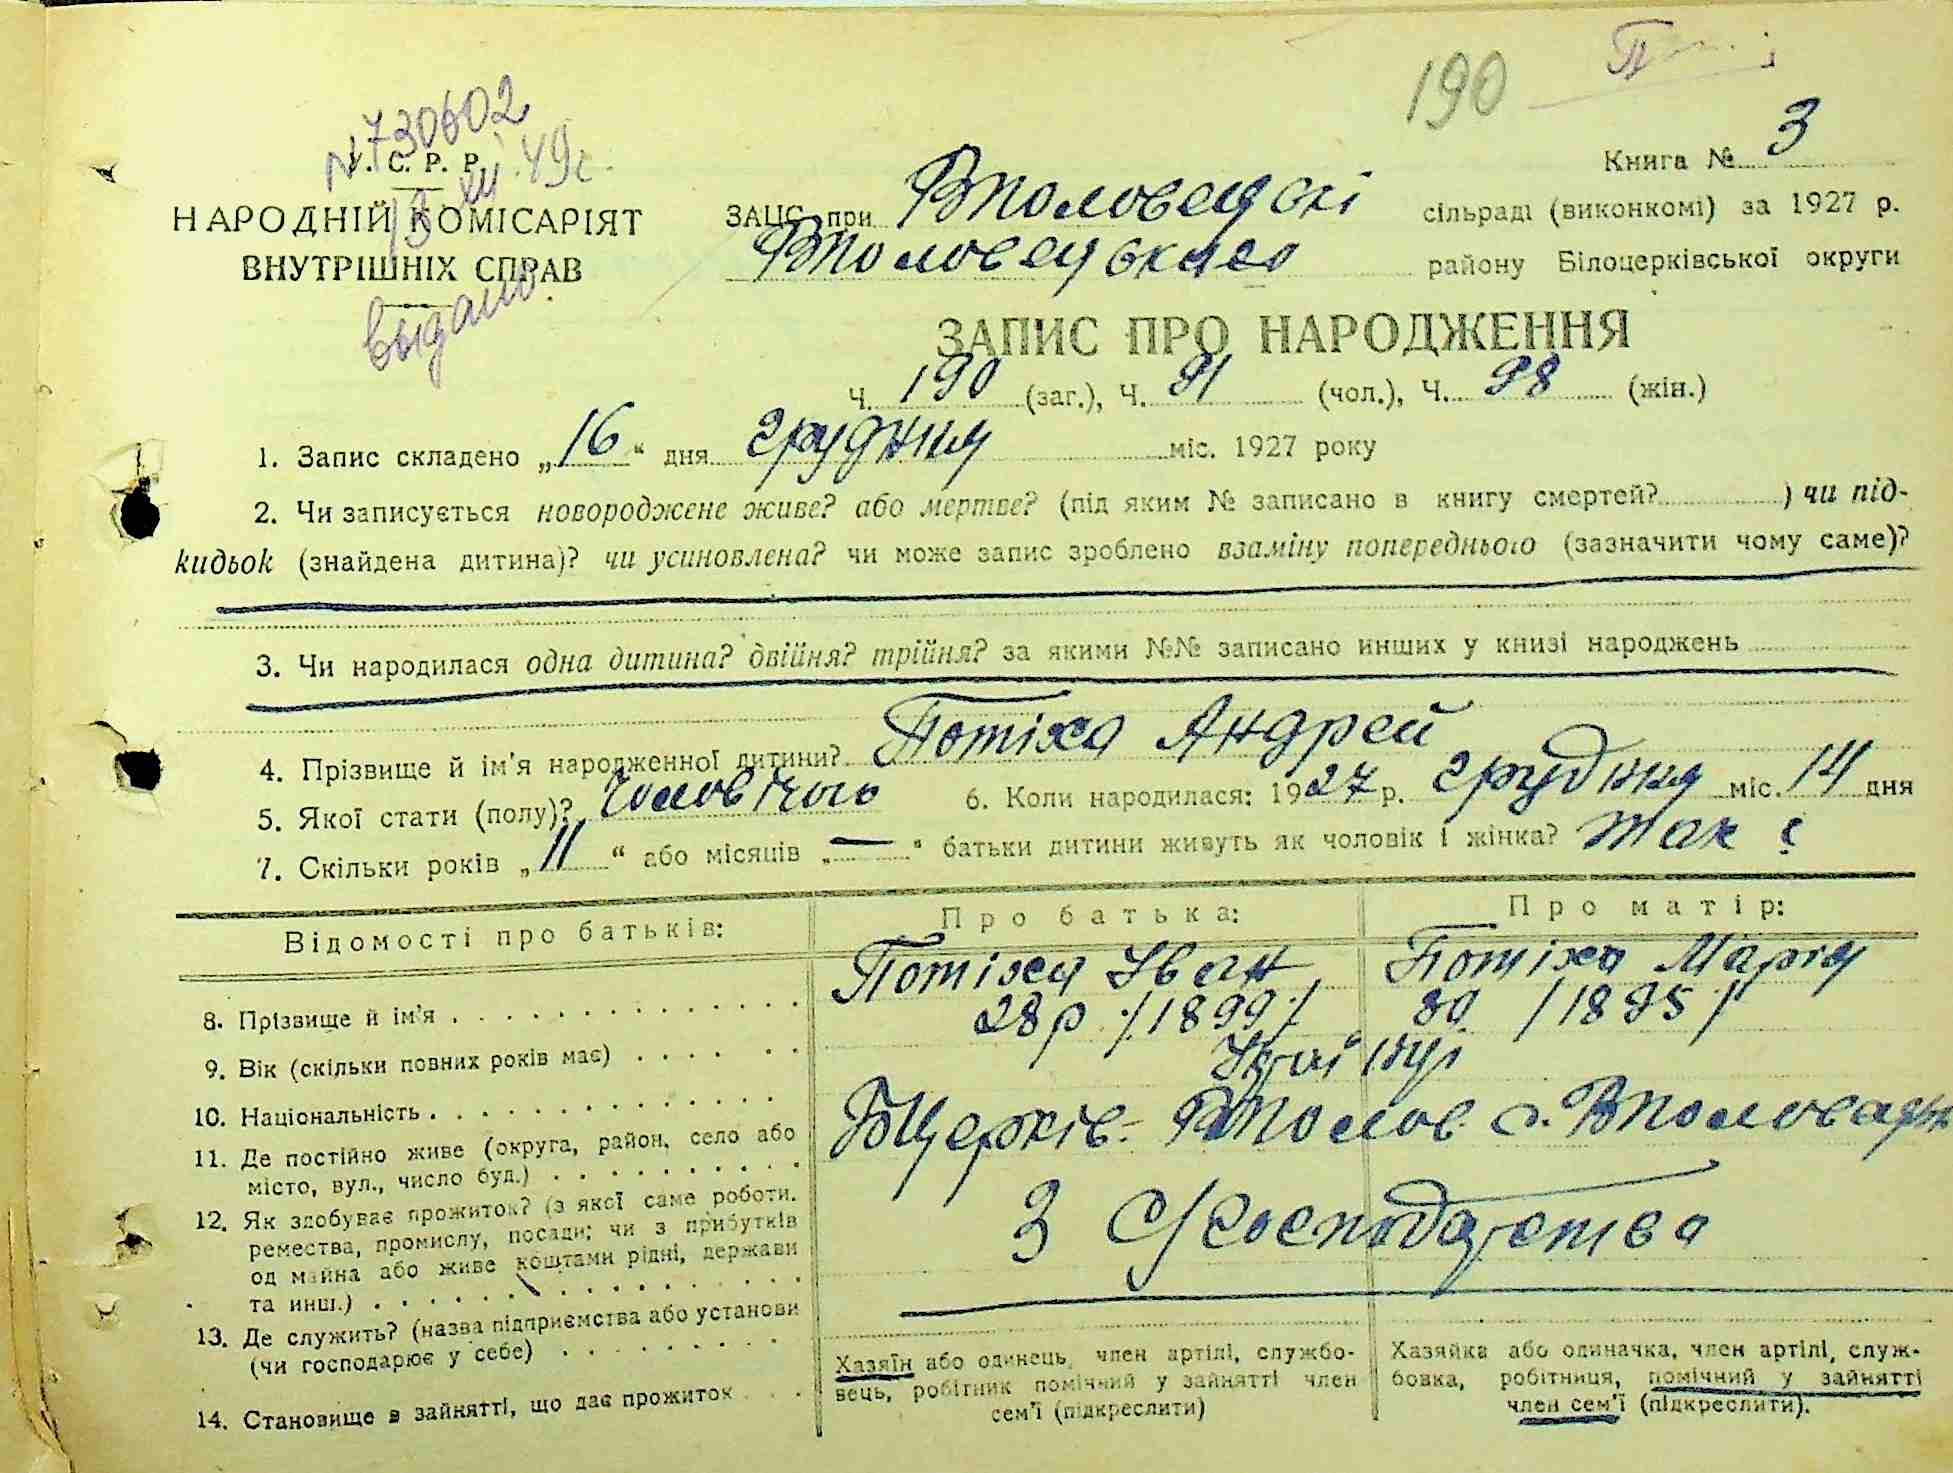 190
№730602
У. С. Р. Р.
13 XII 49 г.
выдано.
НАРОДНІЙ КОМІСАРІЯТ
ВНУТРІШНІХ СПРАВ
Книга № 3
ЗАЦС при ВПоловецькі сільраді (виконкомі) за 1927 р.
ВПоловецького району Білоцерківської округи
ЗАПИС ПРО НАРОДЖЕННЯ
Ч. 190 (заг.), Ч. 91 (чол.), Ч. 98 (жін.)
1. Запис складено „16“ дня грудня міс. 1927 року
2. Чи записується новороджене живе? або мертве? (під яким № записано в книгу смертей? ) чи під-
кидьок (знайдена дитина)? чи усиновлена? чи може запис зроблено взаміну попереднього (зазначити чому саме)?
3. Чи народилася одна дитина? двійня? трійня? за якими №№ записано инших у книзі народжень
4. Прізвище й ім'я народженної дитини? Потіха Андрей
5. Якої стати (полу)? Чоловічого 6. Коли народилася: 1927 р. грудня міс. 14 дня
7. Скільки років „11“ або місяців „—“ батьки дитини живуть як чоловік і жінка? так
Відомості про батьків: Про батька: Про матір:
8. Прізвище й ім'я Потіха Іван Потіха Марія
9. Вік (скільки повних років має) 28 р /1899/ /1895/
10. Національність
11. Де постійно живе (округа, район, село або
місто, вул., число буд.) БЦерків- ВПолов. с. ВПоловецьк
12. Як здобуває прожиток? (з якої саме роботи,
ремества, промислу, посади; чи з прибутків
од майна або живе коштами рідні, держави
та инш.) З С/господарства
13. Де служить? (назва підприємства або установи
(чи господарює у себе)
14. Становище в зайнятті, що дає прожиток
Хазяїн або одинець, член артілі, службо-
вець, робітник помічний у зайнятті член
сем'ї (підкреслити)
Хазяйка або одиначка, член артілі, служ-
бовка, робітниця, помічний у зайнятті
член сем'ї (підкреслити).